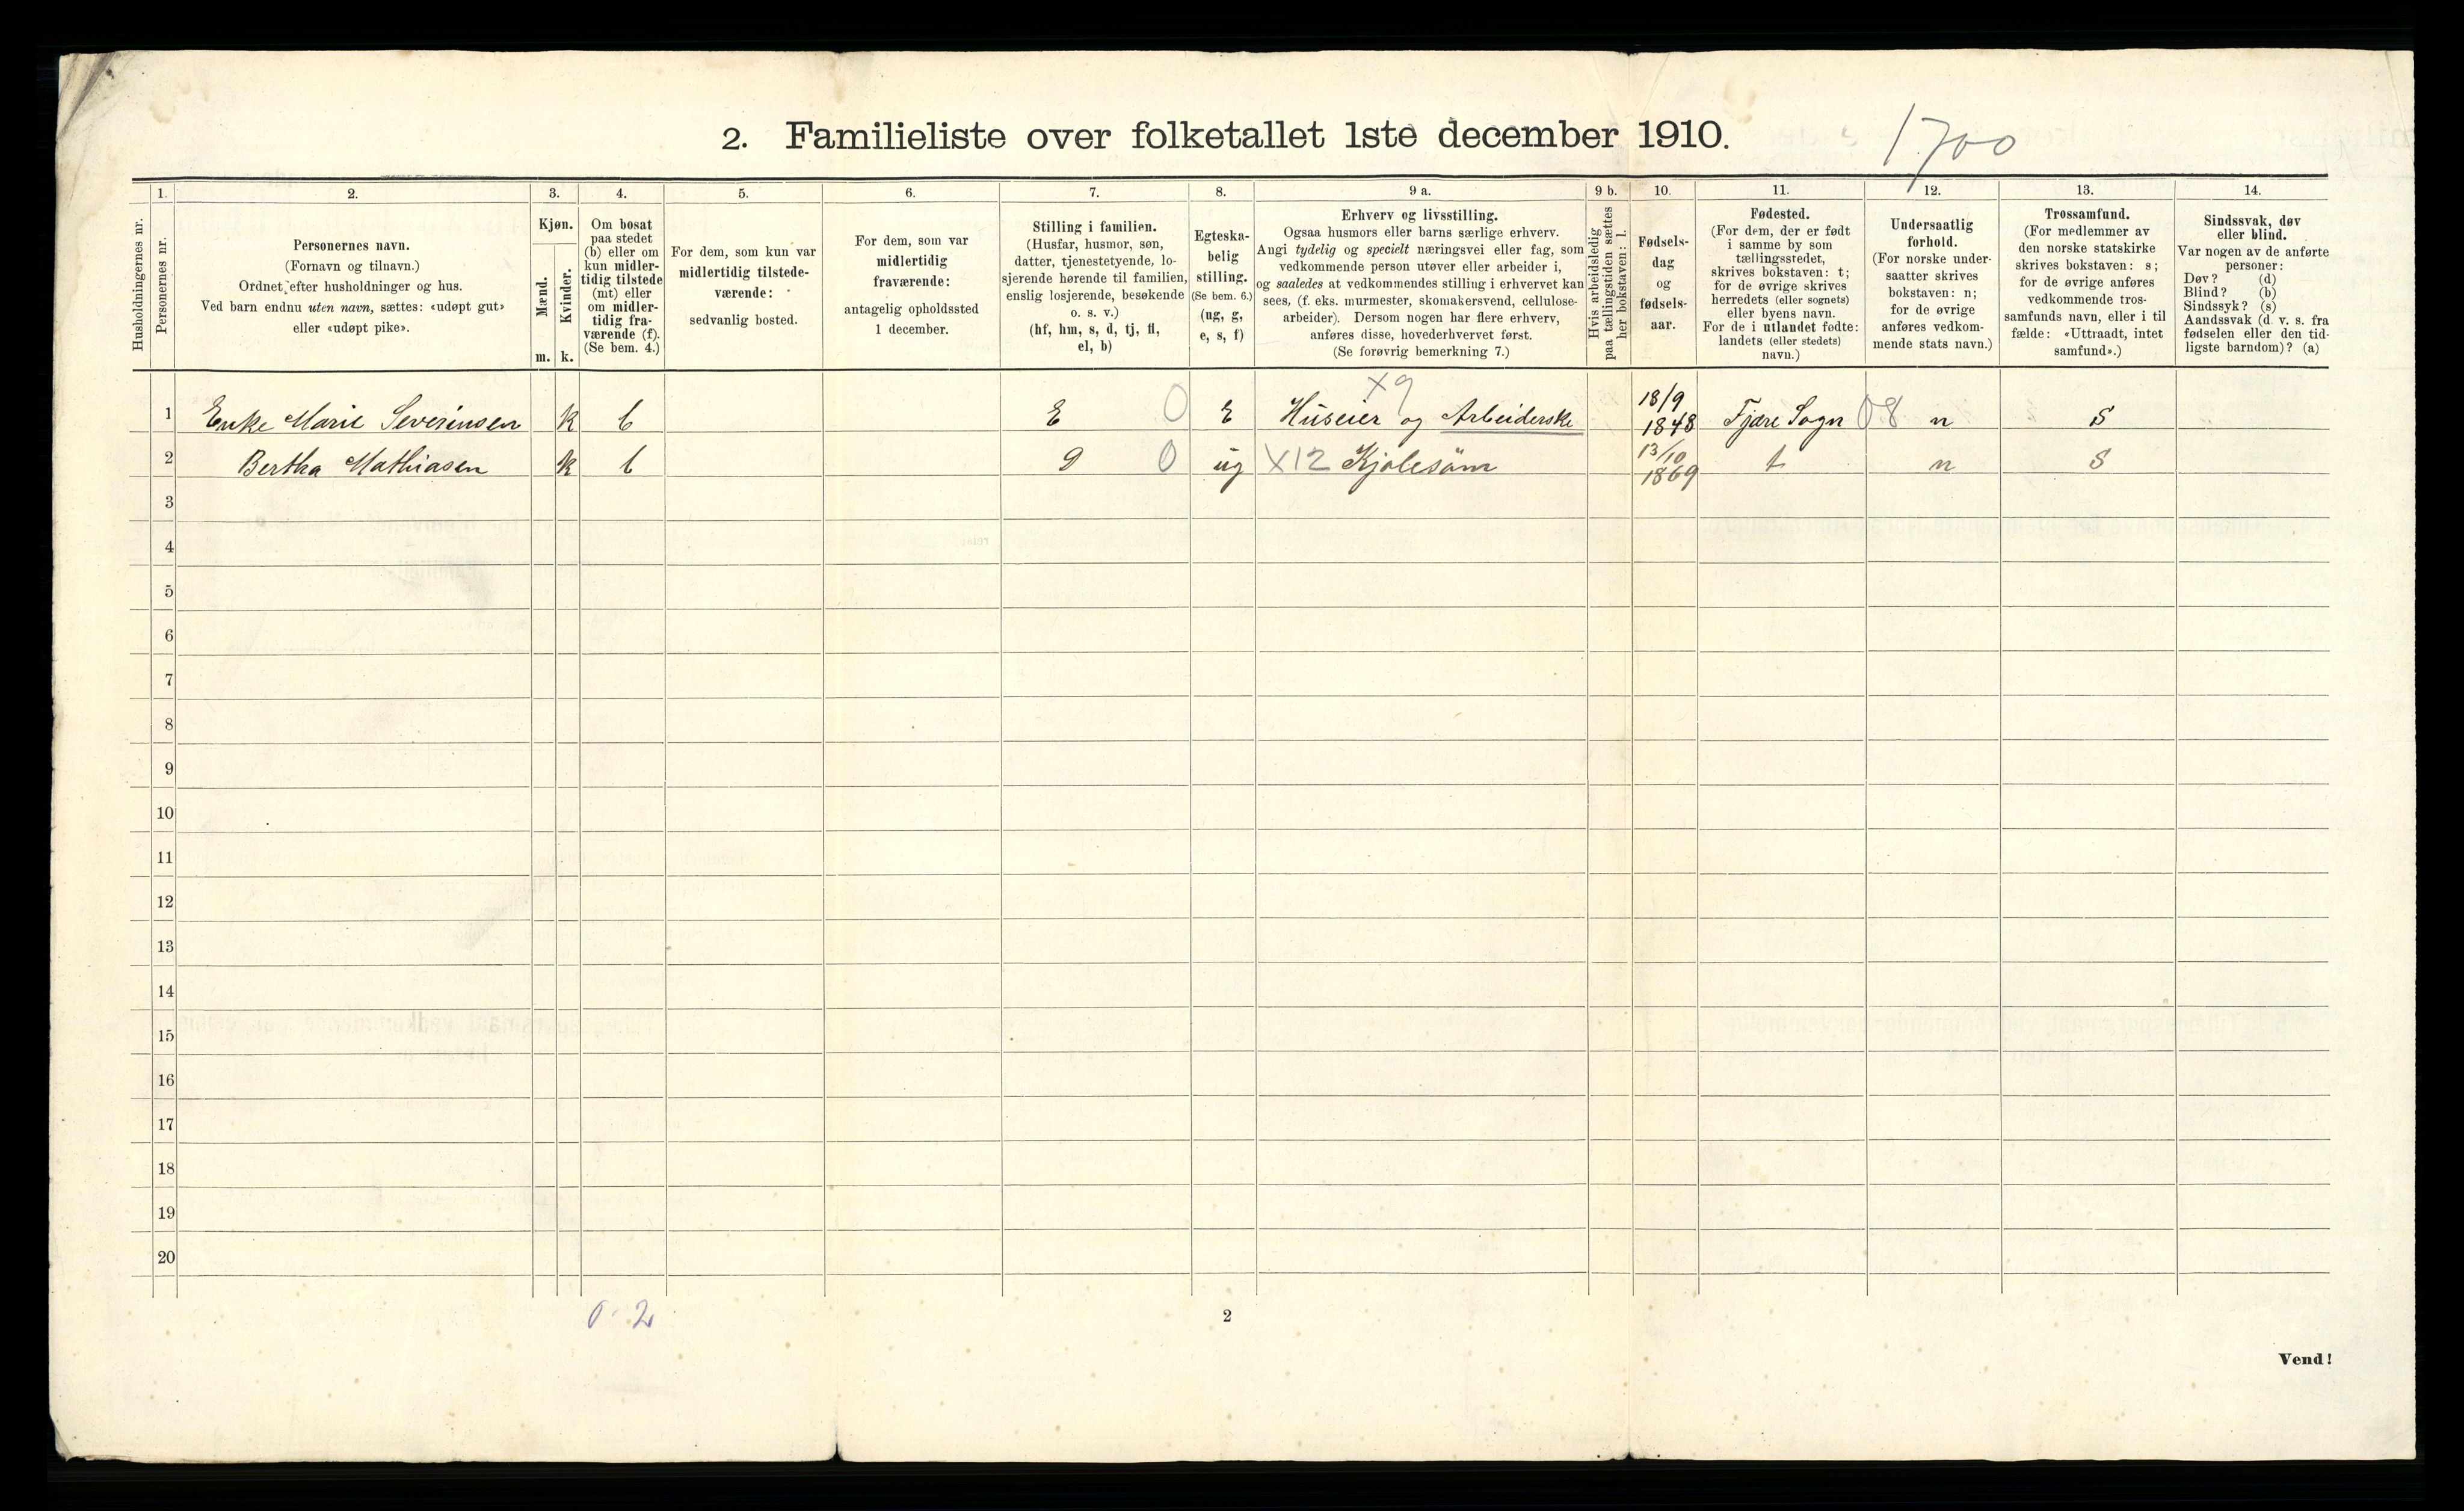 2. Familieliste over folketallet 1ste december 1910.
1700
Husholdningernes nr.
1.
Personernes nr.
2.
Personernes navn.
(Fornavn og tilnavn.)
Ordnet efter husholdninger og hus.
Ved barn endnu uten navn, sættes: «udøpt gut»
eller «udøpt pike».
3.
Kjøn.
Mænd.
Kvinder.
m. k.
4.
Om bosat
paa stedet
(b) eller om
kun midler-
tidig tilstede
(mt) eller
om midler-
tidig fra-
værende (f).
(Se bem. 4.)
5.
For dem, som kun var
midlertidig tilstede-
værende:
sedvanlig bosted.
6.
For dem, som var
midlertidig
fraværende:
antagelig opholdssted
1 december.
7.
Stilling i familien.
(Husfar, husmor, søn,
datter, tjenestetyende, lo-
sjerende hørende til familien,
enslig losjerende, besøkende
o. s. v.)
(hf, hm, s, d, tj, fl,
el, b)
8.
Egteska-
belig
stilling.
(Se bem. 6.)
(ug, g,
e, s, f)
9 a.
Erhverv og livsstilling.
Ogsaa husmors eller barns særlige erhverv.
Angi tydelig og specielt næringsvei eller fag, som
vedkommende person utøver eller arbeider i,
og saaledes at vedkommendes stilling i erhvervet kan
sees, (f. eks. murmester, skomakersvend, cellulose-
arbeider). Dersom nogen har flere erhverv,
anføres disse, hovederhvervet først.
(Se forøvrig bemerkning 7.)
9 b.
Hvis arbeidsledig
paa tællingstiden sættes
her bokstaven: l.
10.
Fødsels-
dag
og
fødsels-
aar.
11.
Fødested.
(For dem, der er født
i samme by som
tællingsstedet,
skrives bokstaven: t;
for de øvrige skrives
herredets (eller sognets)
eller byens navn.
For de i utlandet fødte:
landets (eller stedets)
navn.)
12.
Undersaatlig
forhold.
(For norske under-
saatter skrives
bokstaven: n;
for de øvrige
anføres vedkom-
mende stats navn.)
13.
Trossamfund.
(For medlemmer av
den norske statskirke
skrives bokstaven: s;
for de øvrige anføres
vedkommende tros-
samfunds navn, eller i til
fælde: «Uttraadt, intet
samfund».)
14.
Sindssvak, døv
eller blind.
Var nogen av de anførte
personer:
Døv? (d)
Blind? (b)
Sindssyk? (s)
Aandssvak (d. v. s. fra
fødselen eller den tid-
ligste barndom)? (a)
X9
1 Enke Marie Severinsen k b E 0 E Huseier og Arbeiderske 18/9 1848 Fjære Sogn 08 n S
2 Bertha Mathiasen k b 0 ug X12 Kjolesöm 13/10 1869 t n S
3
4
5
6
7
8
9
10
11
12
13
14
15
16
17
18
19
20
0-2
2
Vend!